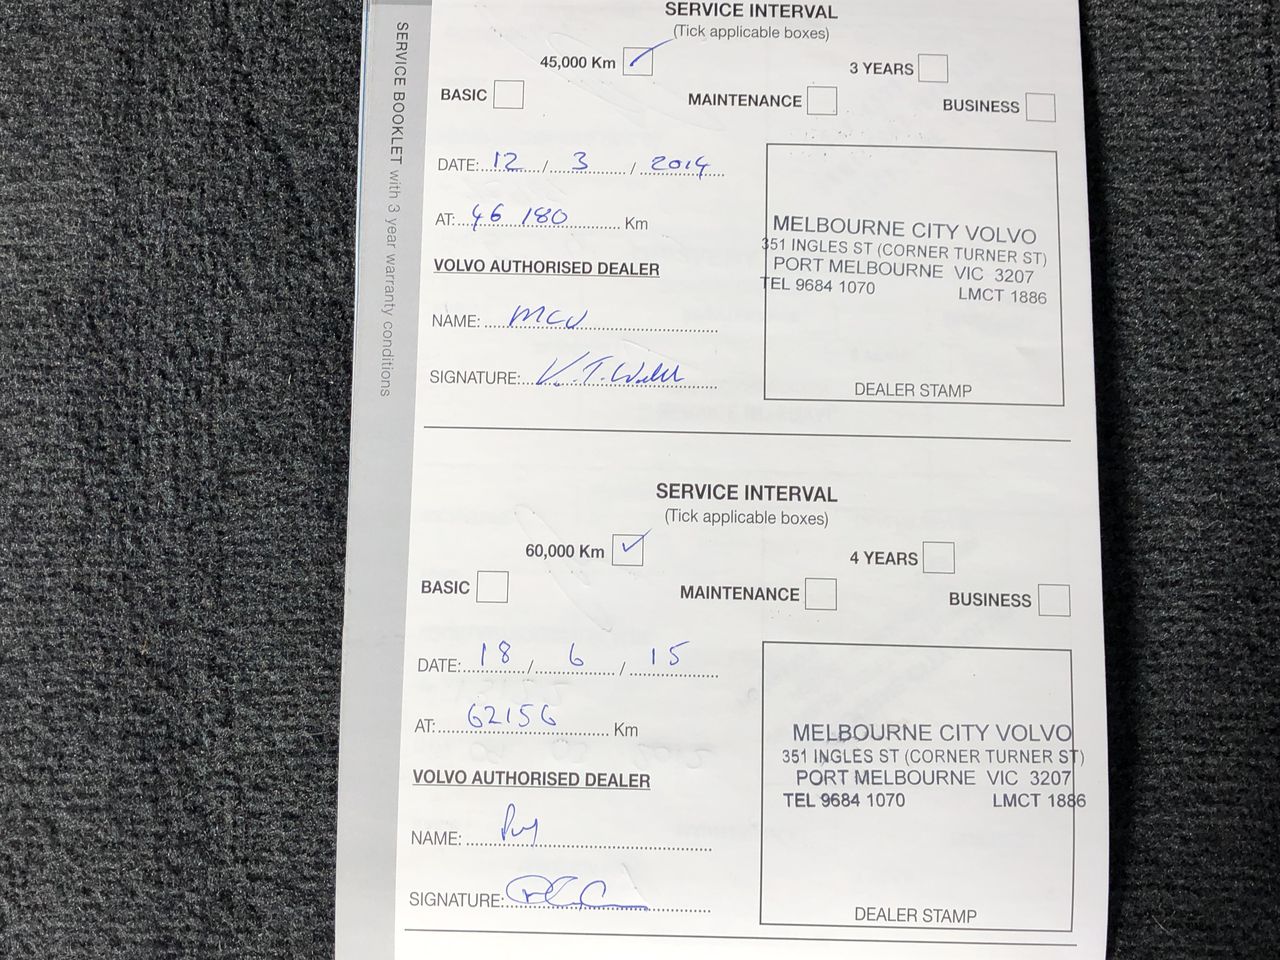 SERVICE BOOKLET with 3 year warranty conditions
SERVICE INTERVAL
(Tick applicable boxes)
45,000 Km ✓ 3 YEARS
BASIC MAINTENANCE BUSINESS
DATE: 12 / 3 / 2014
AT: 46 180 Km
VOLVO AUTHORISED DEALER
NAME: MCV
SIGNATURE:
MELBOURNE CITY VOLVO
351 INGLES ST (CORNER TURNER ST)
PORT MELBOURNE VIC 3207
TEL 9684 1070 LMCT 1886
DEALER STAMP
SERVICE INTERVAL
(Tick applicable boxes)
60,000 Km ✓ 4 YEARS
BASIC MAINTENANCE BUSINESS
DATE: 18 / 6 / 15
AT: 62156 Km
VOLVO AUTHORISED DEALER
NAME:
SIGNATURE:
MELBOURNE CITY VOLVO
351 INGLES ST (CORNER TURNER ST)
PORT MELBOURNE VIC 3207
TEL 9684 1070 LMCT 1886
DEALER STAMP